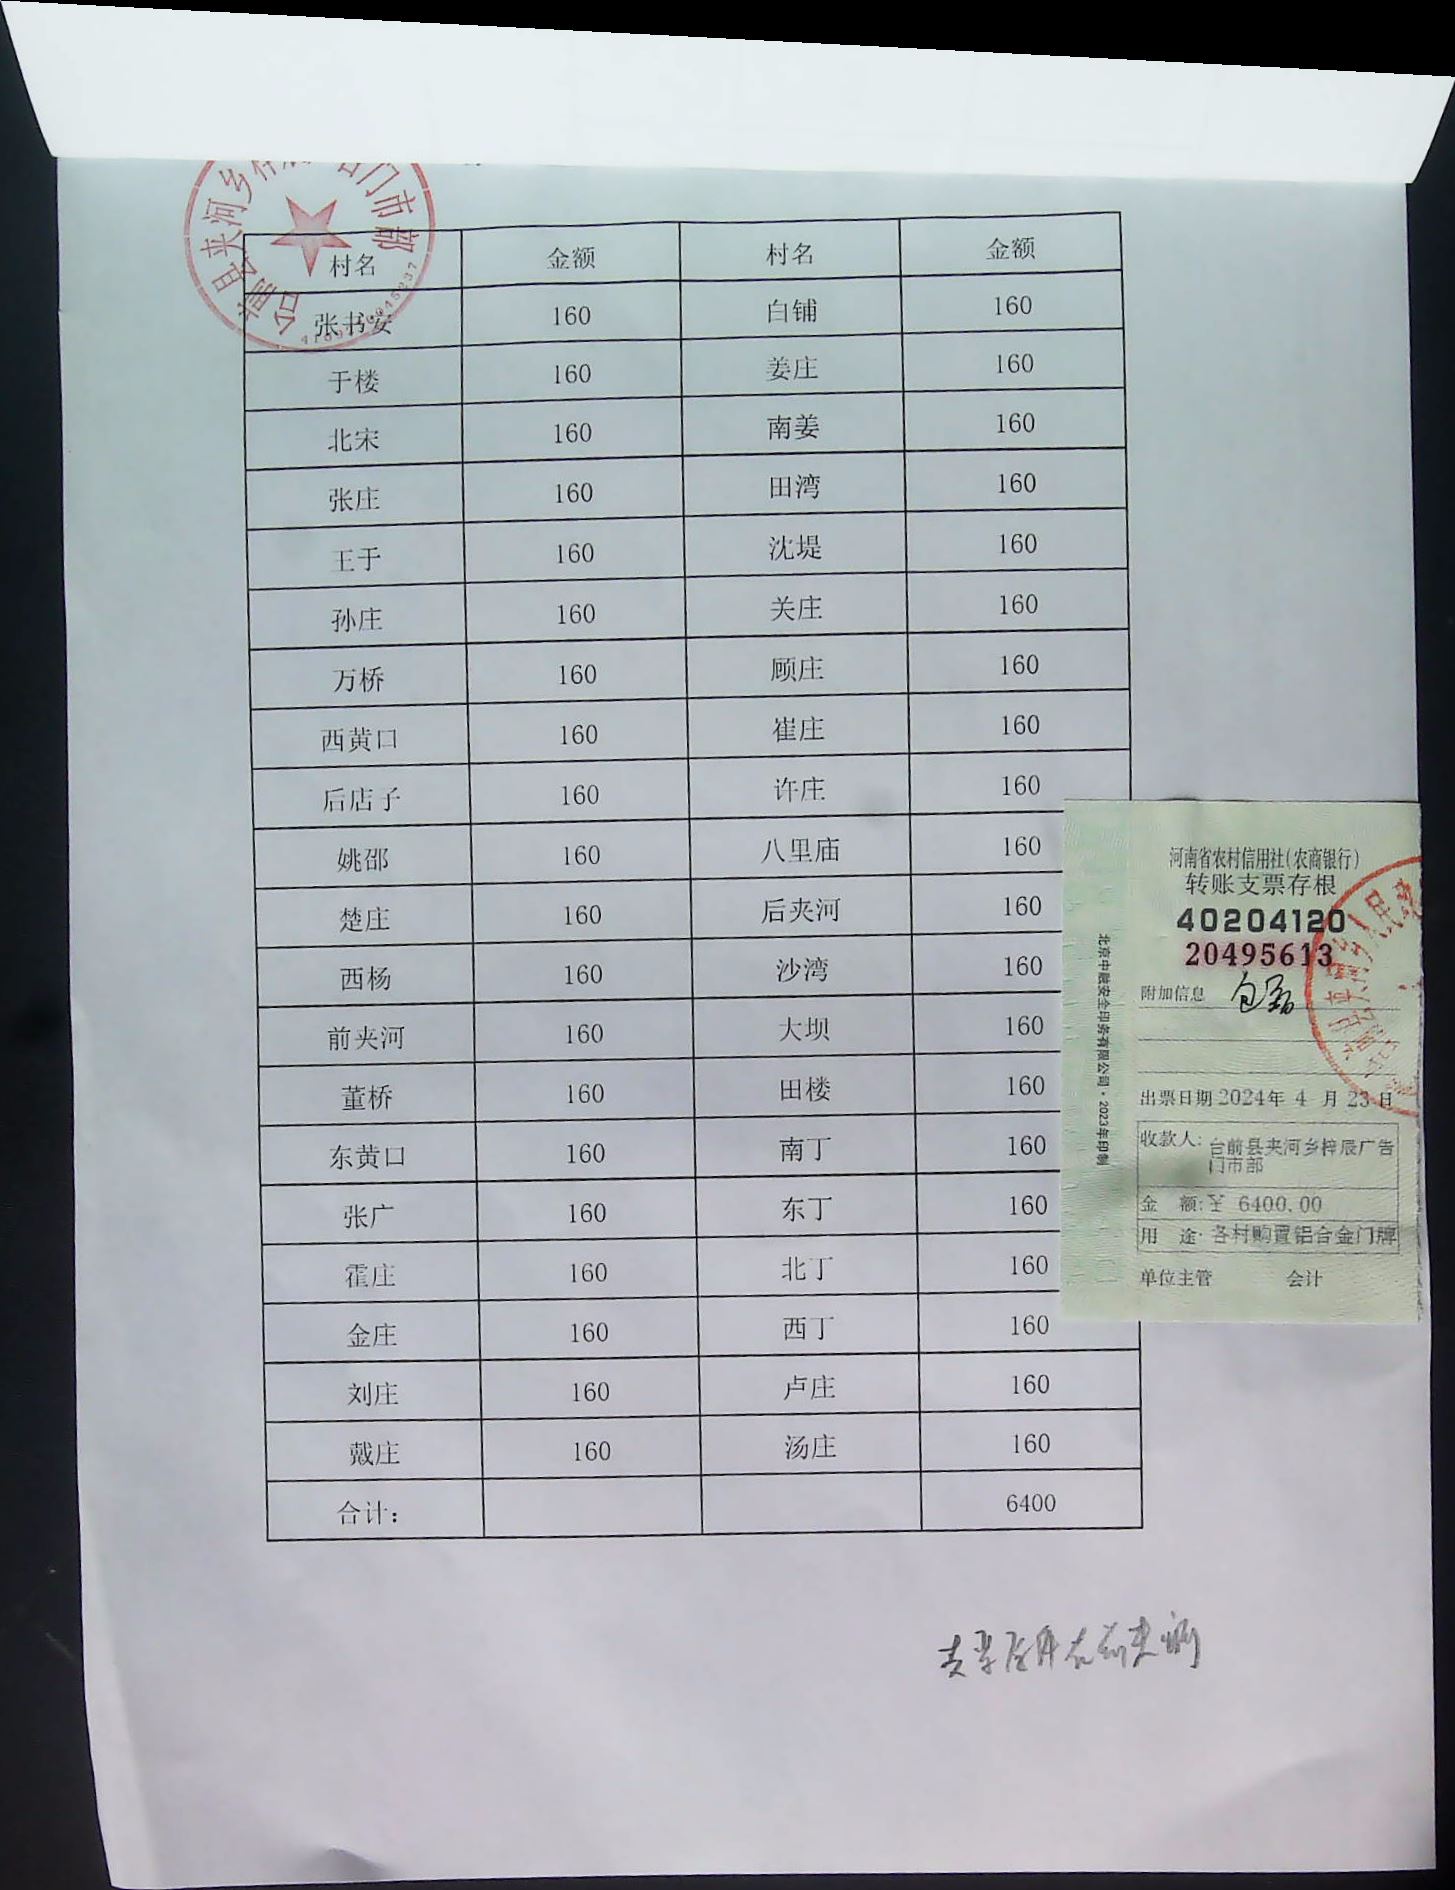 村名 金额 村名 金额
张书安 160 白铺 160
于楼 160 姜庄 160
北宋 160 南姜 160
张庄 160 田湾 160
王于 160 沈堤 160
孙庄 160 关庄 160
万桥 160 顾庄 160
西黄口 160 崔庄 160
后店子 160 许庄 160
姚邵 160 八里庙 160
楚庄 160 后夹河 160
西杨 160 沙湾 160
前夹河 160 大坝 160
董桥 160 田楼 160
东黄口 160 南丁 160
张广 160 东丁 160
霍庄 160 北丁 160
金庄 160 西丁 160
刘庄 160 卢庄 160
戴庄 160 汤庄 160
合计： 6400
河南省农村信用社(农商银行)
转账支票存根
40204120
20495613
附加信息
出票日期 2024年 4 月 23 日
收款人: 台前县夹河乡梓辰广告
门市部
金 额: ¥ 6400.00
用 途: 各村购置铝合金门牌
单位主管 会计
北京中融安全印务有限公司·2023年印制